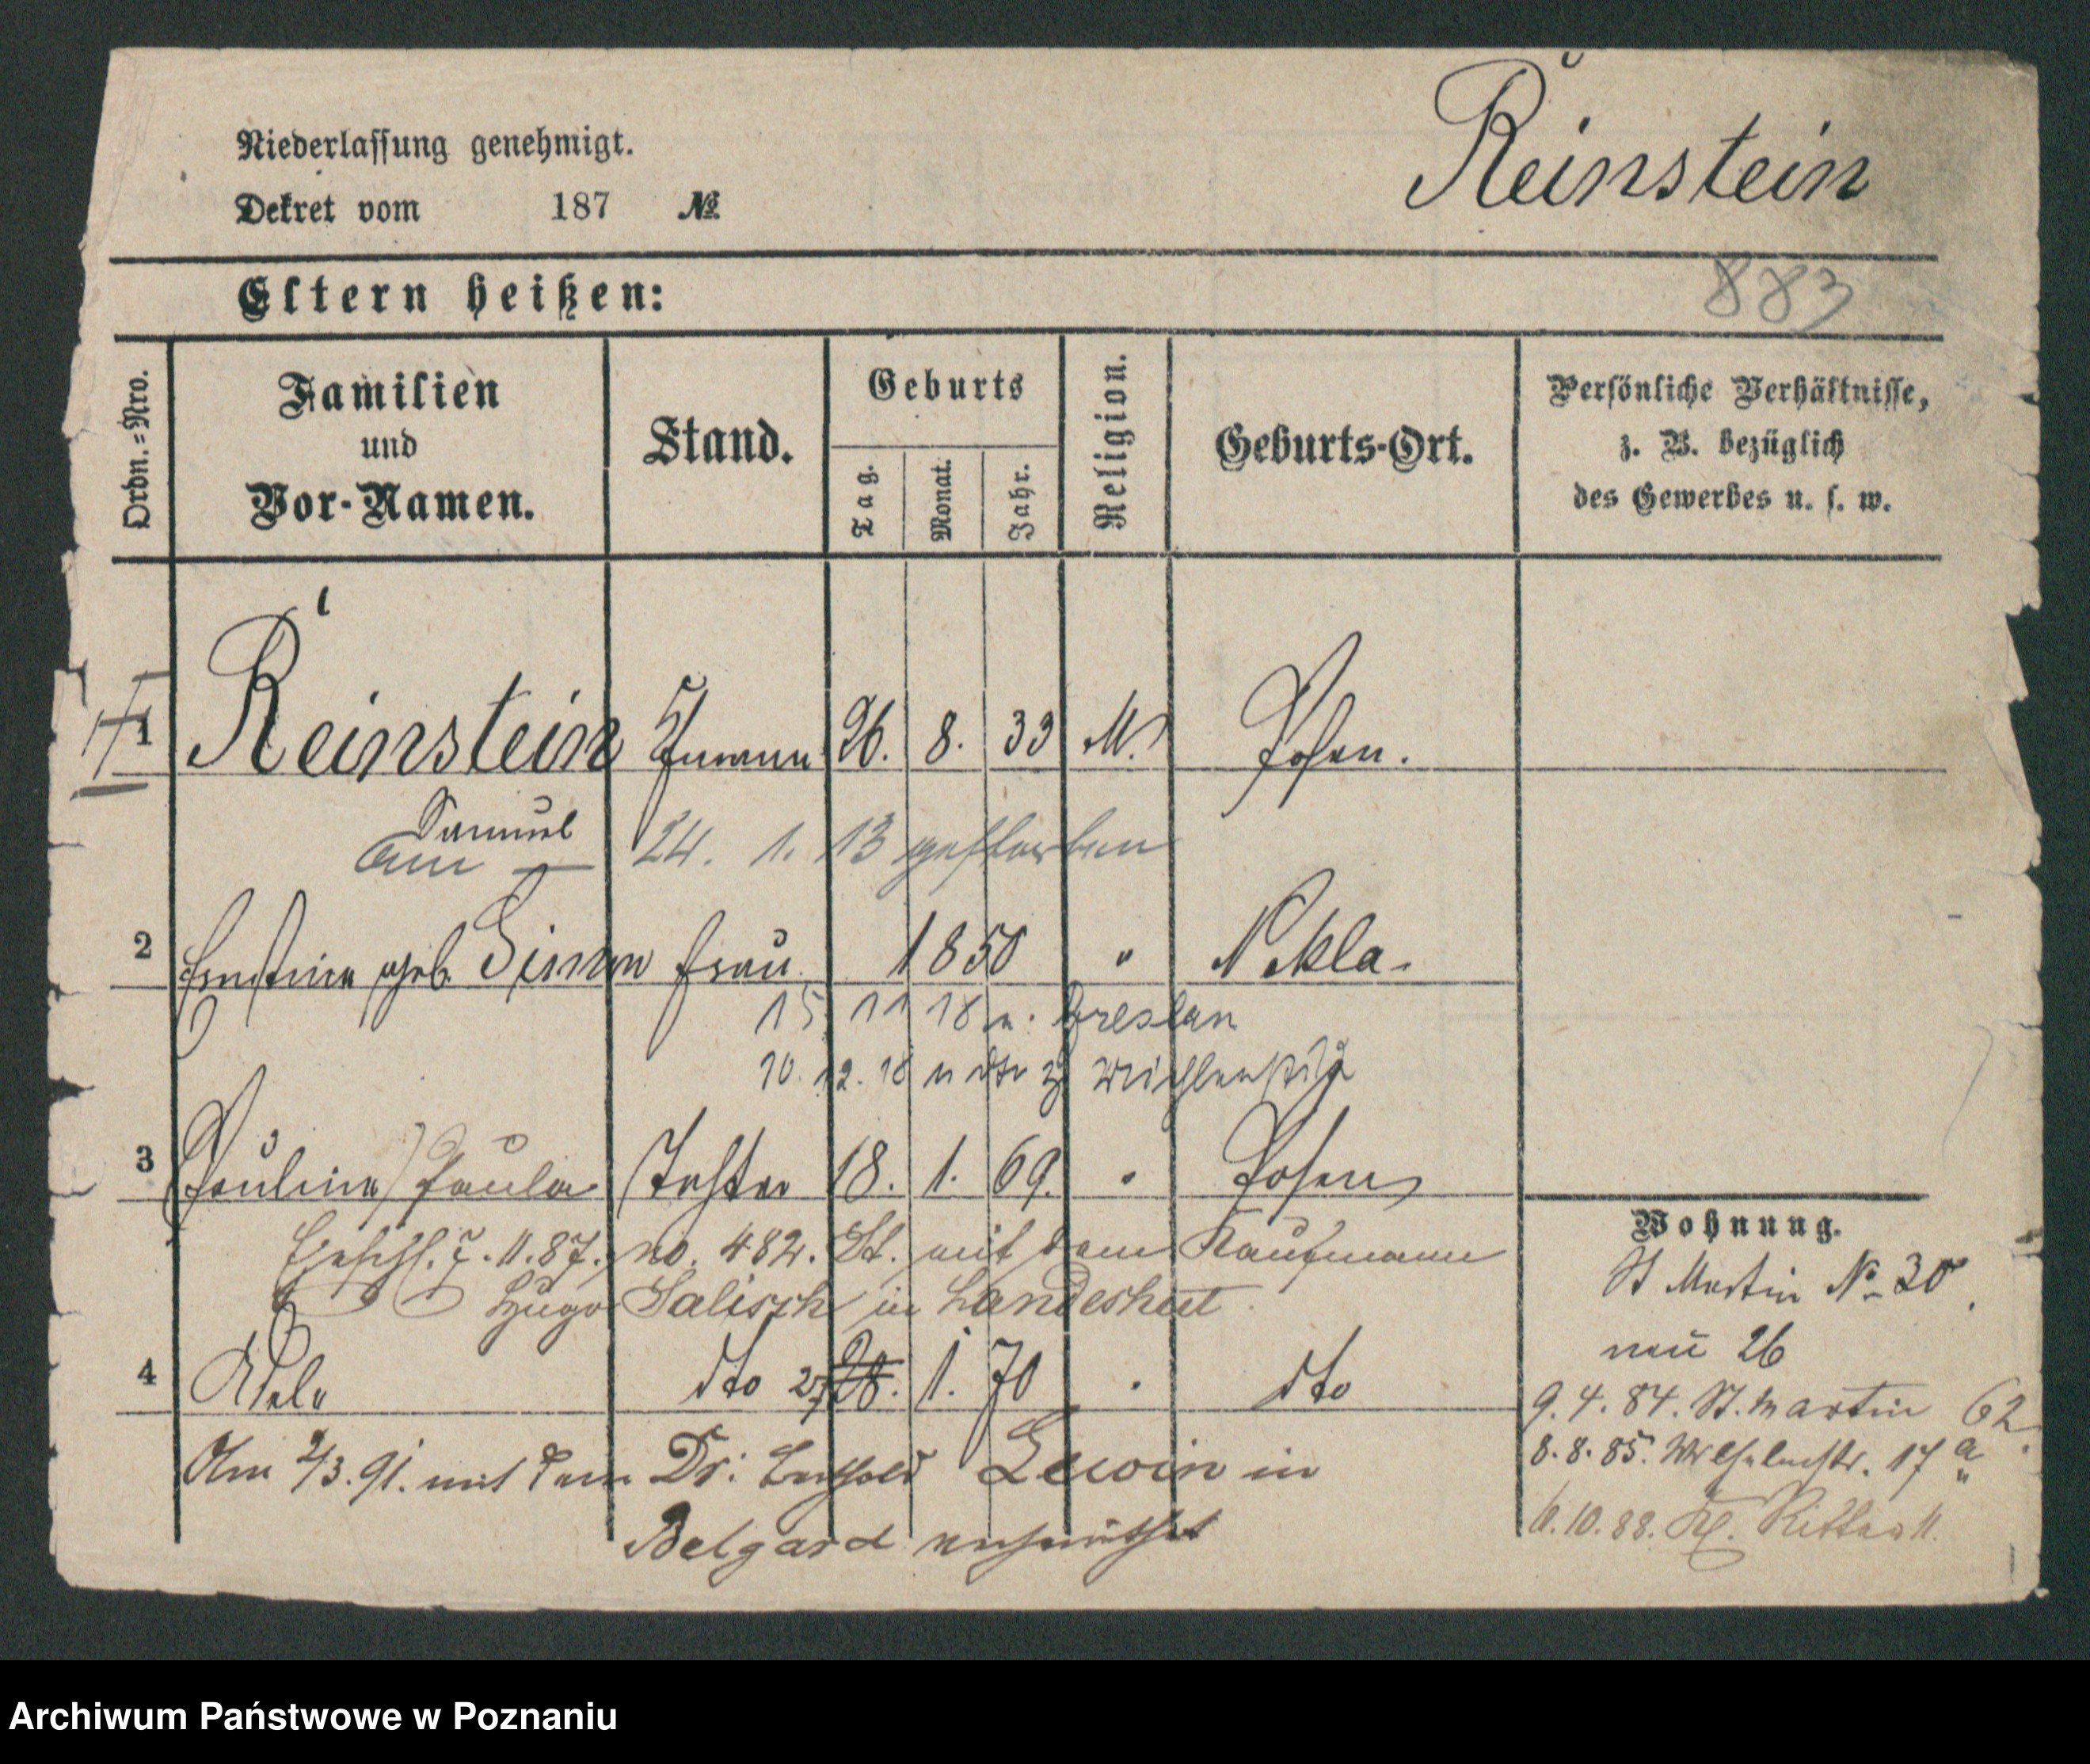 Reinstein
Niederlassung genehmigt.
Dekret vom 187 №
883
Eltern heißen:
Ordn.=Nro. Familien und Vor-Namen. Stand. Geburts Tag. Monat. Jahr. Religion. Geburts-Ort. Persönliche Verhältnisse, z. B. bezüglich des Gewerbes u. s. w.
1 Reinstein 26. 8. 33 M. Posen.
Samuel
am 24. 1. 13 gestorben
2 Ernstine geb. Simon Frau 1850 " Nekla.
15. 11 18 n. Breslau
10. 12. 18 n
3 Pauline / Paula Tochter 18. 1. 69. " Posen
7. 11. 87. no. 482. St. mit dem Kaufmann
Hugo Salisch in Landeshut.
4 Adele dto 27 28. 1. 70 " dto
Am 2/3. 91. mit dem Dr. Lewin in
Belgard verheirathet
Wohnung.
St Martin No 30
neu 26
9. 4. 84. St. Martin 62.
8. 8. 85. Wilhelmstr. 17 a
10. 88. Kl. Ritter 11.
Archiwum Państwowe w Poznaniu